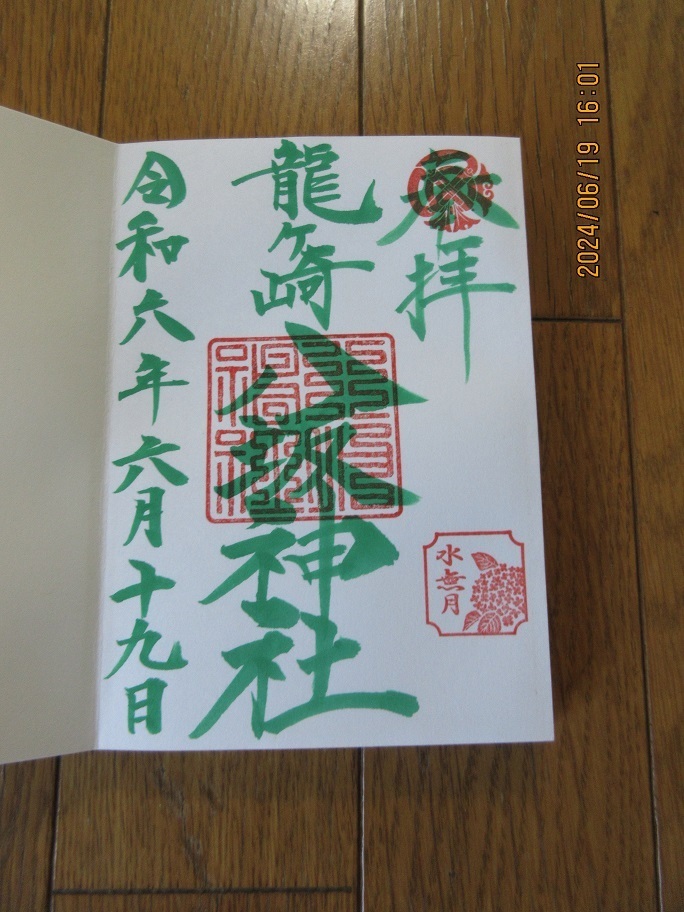 奉拝
龍ヶ崎
八坂神社
令和六年六月十九日
水無月
2024/06/19 16:01